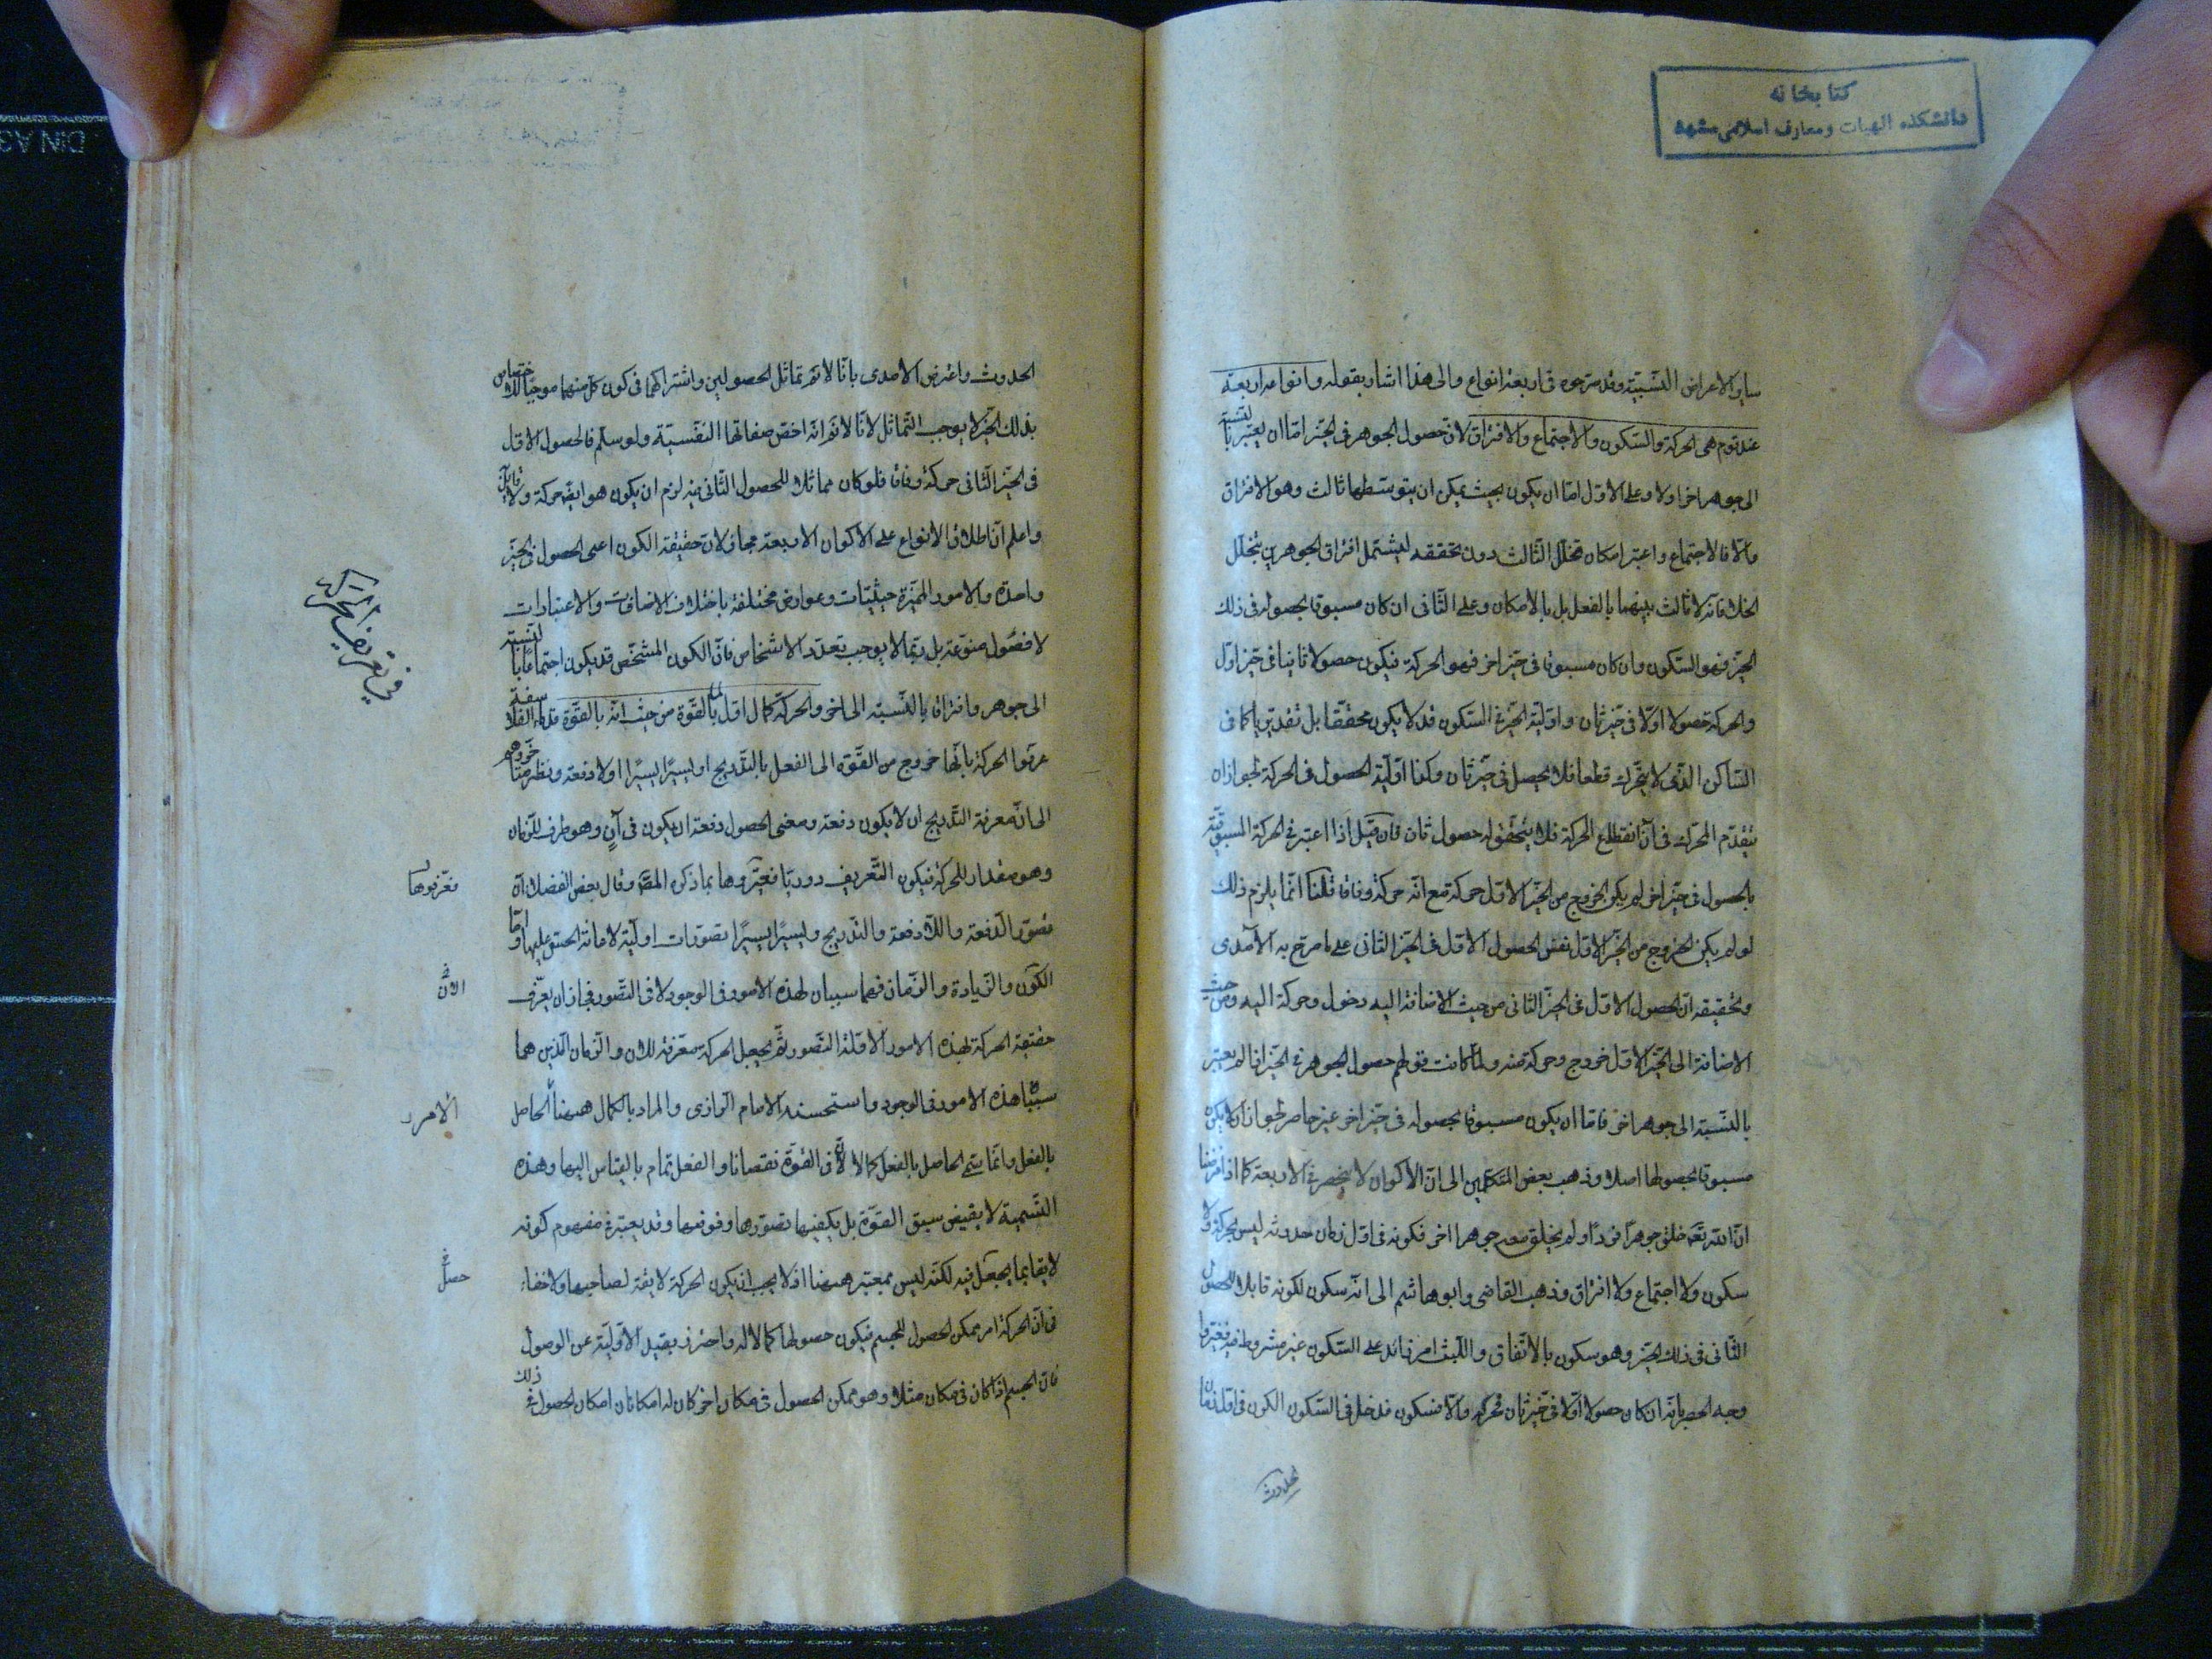 كتابخانه
دانشكده الهيات ومعارف اسلامى مشهد
ساير الاعراض النسبيّة وقد حصروه فى اربعة انواع والى هذا اشار بقوله وانواعه اربعة
عند قوم هى الحركة والسّكون والاجتماع والافتراق لانّ حصول الجوهر فى الحيّز امّا ان يعتبر بالنسبة
الى جوهر اخر اولا وعلى الاوّل امّا ان يكون بحيث يمكن ان يتوسّطها ثالث وهو الافتراق
والّا فالاجتماع واعتبر امكان تخلّل الثّالث دون تحققه ليشتمل افتراق الجوهرين بتخلّل
الخلاء فانّه لا ثالث بينهما بالفعل بل بالامكان وعلى الثّانى ان كان مسبوقا بحصوله فى ذلك
الحيّز فهو السّكون وان كان مسبوقا فى حيّز اخر فهو الحركة فيكون حصولا ثانيا فى حيّز اوّل
والحركة حصولا اوّلا فى حيّز ثان واوّليّة الحيّز فى السّكون قد لا يكون محقّقا بل تقديريا كما فى
السّاكن الذّى لا يتحرّك قطعا فلا يحصل فى حيّز ثان وكذا اوّليّة الحصول فى الحركة لجواز ان
ينعدم المتحرّك فى آن انقطاع الحركة فلا يتحقّق له حصول ثان فان قيل اذا اعتبر فى الحركة المسبوقيّة
بالحصول فى حيّز اخر لم يكن الخروج من الحيّز الاوّل حركة مع انّه حركة وفاقا قلنا انّما يلزم ذلك
لو لم يكن الخروج من الحيّز الاوّل نفس الحصول الاوّل فى الحيّز الثانى على ما صرّح به الآمدى
وتحقيقه انّ الحصول الاوّل فى الحيّز الثانى من حيث الاضافة اليه دخول وحركة اليه ومن حيث
الاضافة الى الحيّز الاوّل خروج وحركة منه ولمّا كانت قولهم حصول الجوهر فى الحيّز اذا لم يعتبر
بالنّسبة الى جوهر اخر فامّا ان يكون مسبوقا بحصوله فى حيّز اخر غير حاصر لجواز ان لا يكون
مسبوقا بحصولها اصلا وذهب بعض المتكلّمين الى انّ الاكوان لا ينحصر فى الاربعة كما اذا فرضنا
انّ اللّه تعالى خلق جوهرًا فردًا ولم يخلق معه جوهرا اخر فكونه فى اوّل زمان حدوثه ليس بحركة ولا
سكون ولا اجتماع ولا افتراق وذهب القاضى وابو هاشم الى انّه سكون لكونه مماثلا للحصول
الثّانى فى ذلك الحيّز وهو سكون بالاتّفاق واللّبث امر زائد على السّكون غير مشروط فيه
وجه الحصر بانّه ان كان حصولا اوّلا فى حيّز ثان فحركة والّا فسكون فدخل فى السّكون الكون فى اوّل زمان
الحدوث
الحدوث واعترض الامدى بانّا لا نم تماثل الحصولين واشتراكهما فى كون كلّ منهما موجبًا للاختصاص
بذلك الحيّز لا يوجب التّماثل لانّا لا نم انّه اخصّ صفاتها النفسيّة ولو سلّم فالحصول الاوّل
فى الحيّز الثّانى حركة وفاقا فلو كان مماثلا للحصول الثّانى فيه لزم ان يكون هو ايضا حركة ولا قائل
واعلم انّ اطلاق الانواع على الاكوان الاربعة مجاز لانّ حقيقة الكون اعنى الحصول فى الحيّز
واحدة والامور المميّزة حيثيّات وعوارض مختلفة باختلاف الاضافات والاعتبارات
لا فصول منوّعة بل ربّما لا يوجب تعدّد الاشخاص فانّ الكون المشخّص قد يكون اجتماعًا بالنسبة
الى جوهر وافتراقا بالنّسبة الى اخر والحركة كمال اوّل لما بالقوّة من حيث انّه بالقوّة قدماء الفلاسفة
عرّفوا الحركة بانّها خروج من القوّة الى الفعل بالتّدريج او يسيرًا يسيرًا او لا دفعة ونظر متاخّروهم
الى انّ معرفة التّدريج ان لا يكون دفعة ومعنى الحصول دفعة ان يكون فى آن وهو طرف للزّمان
وهو مقدار للحركة فيكون التّعريف دوريّا فغيّروها بما ذكره المصّ وقال بعض الفضلاء انّ
تصوّر الدّفعة واللّا دفعة والتّدريج ويسيرًا يسيرًا تصوّرات اوّليّة لاعانة الحسّ عليها وامّا
الكون والزّيادة والزّمان فهما سببان لهذه الامور فى الوجود لا فى التّصوّر فجاز ان يعرّف
حقيقة الحركة بهذه الامور الاوّليّة التّصوّر ثمّ يجعل الحركة معرّفة للان والزّمان الّذين هما
سببًا هذه الامور فى الوجود واستحسنه الامام الرّازى والمراد بالكمال ههنا الحاصل
بالفعل وانّما سمّى الحاصل بالفعل كمالا لانّ فى القوّة نقصانا والفعل تمام بالقياس اليها وهذه
التّسمية لا يقتضى سبق القوّة بل يكفيها تصوّرها وفرضها وقد يعتبر فى مفهوم كونه
لايقا بما يحصل فيه لكنّه ليس بمعتبر ههنا اذ لا يجب ان يكون الحركة لايقة لصاحبها ولا خفاء
فى انّ الحركة امر ممكن الحصول للجسم فيكون حصولها كمالا له واحترز بقيد الاوّليّة عن الوصول
فانّ الجسم اذا كان فى مكان مثلا وهو ممكن الحصول فى مكان اخر كان له امكانان امكان الحصول فى ذلك
فى تعريف الحركة
فغيّروها
الآن
الامور
حصل